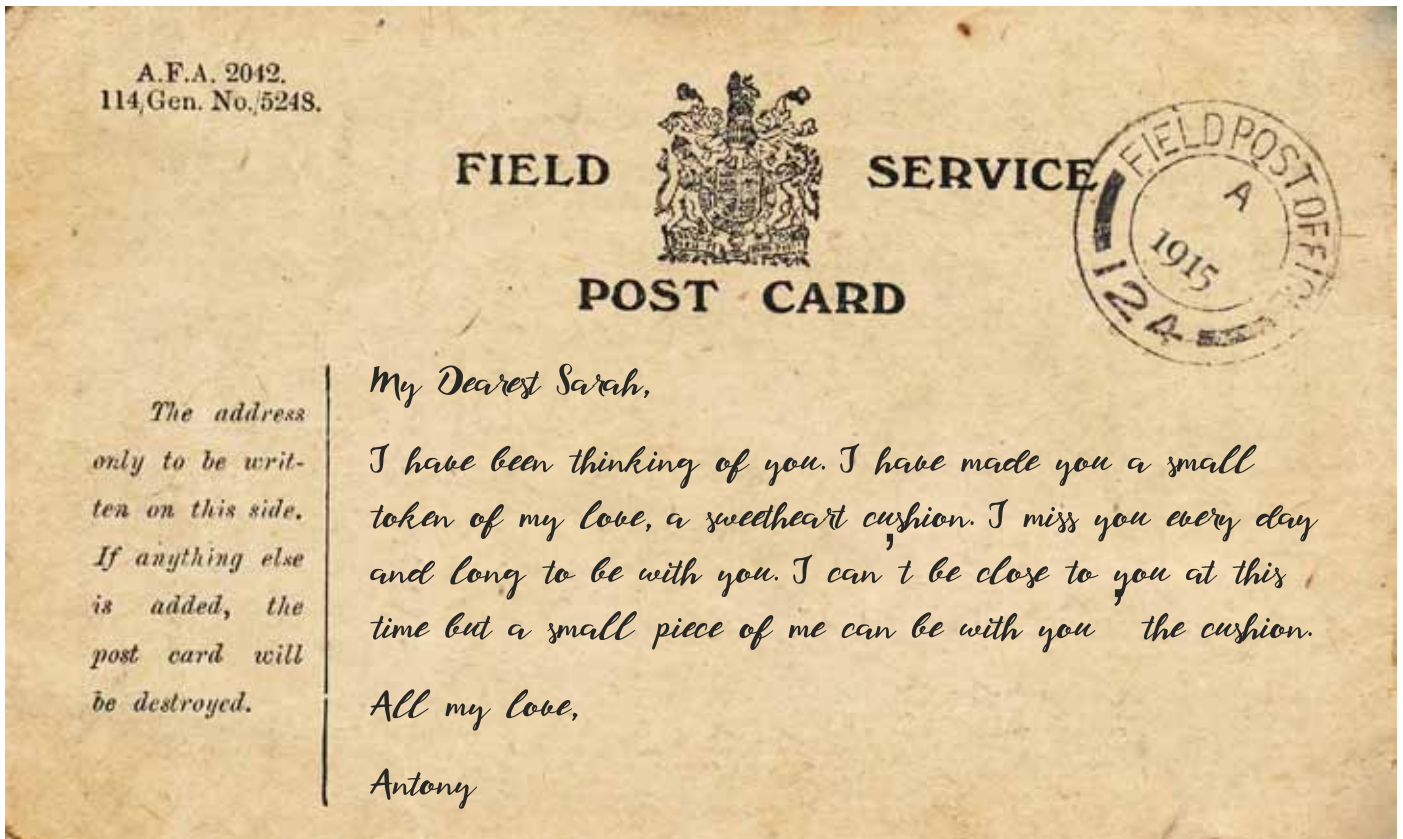 A.F.A. 2042.
114/Gen. No./5248.
FIELD SERVICE
POST CARD
FIELD POST OFFICE
A
1915
124
The address
only to be writ-
ten on this side.
If anything else
is added, the
post card will
be destroyed.
My Dearest Sarah,
I have been thinking of you. I have made you a small
token of my love, a sweetheart cushion. I miss you every day
and long to be with you. I can't be close to you at this
time but a small piece of me can be with you, the cushion.
All my love,
Antony